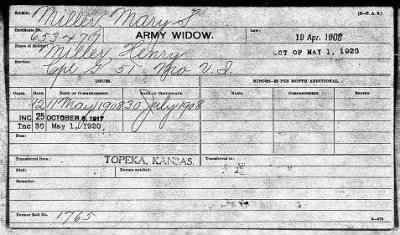 NAME: Miller Mary S
Certificate No. 653479 ARMY WIDOW. Law: 19 Apr. 1908
ACT OF MAY 1, 1920
Name of Soldier: Miller Henry
Service: Mo U.S.
ISSUES. MINORS—$2 PER MONTH ADDITIONAL.
CLASS. RATE. DATE OF COMMENCEMENT. DATE OF CERTIFICATE.
12 11 May 1908 30 July 1908
INC 25 OCTOBER 6, 1917
Inc 30 May 1, 1920
Died:
Transferred from: TOPEKA, KANSAS. Transferred to:
Bureau notified:
Remarks:
Former Roll No. 1765